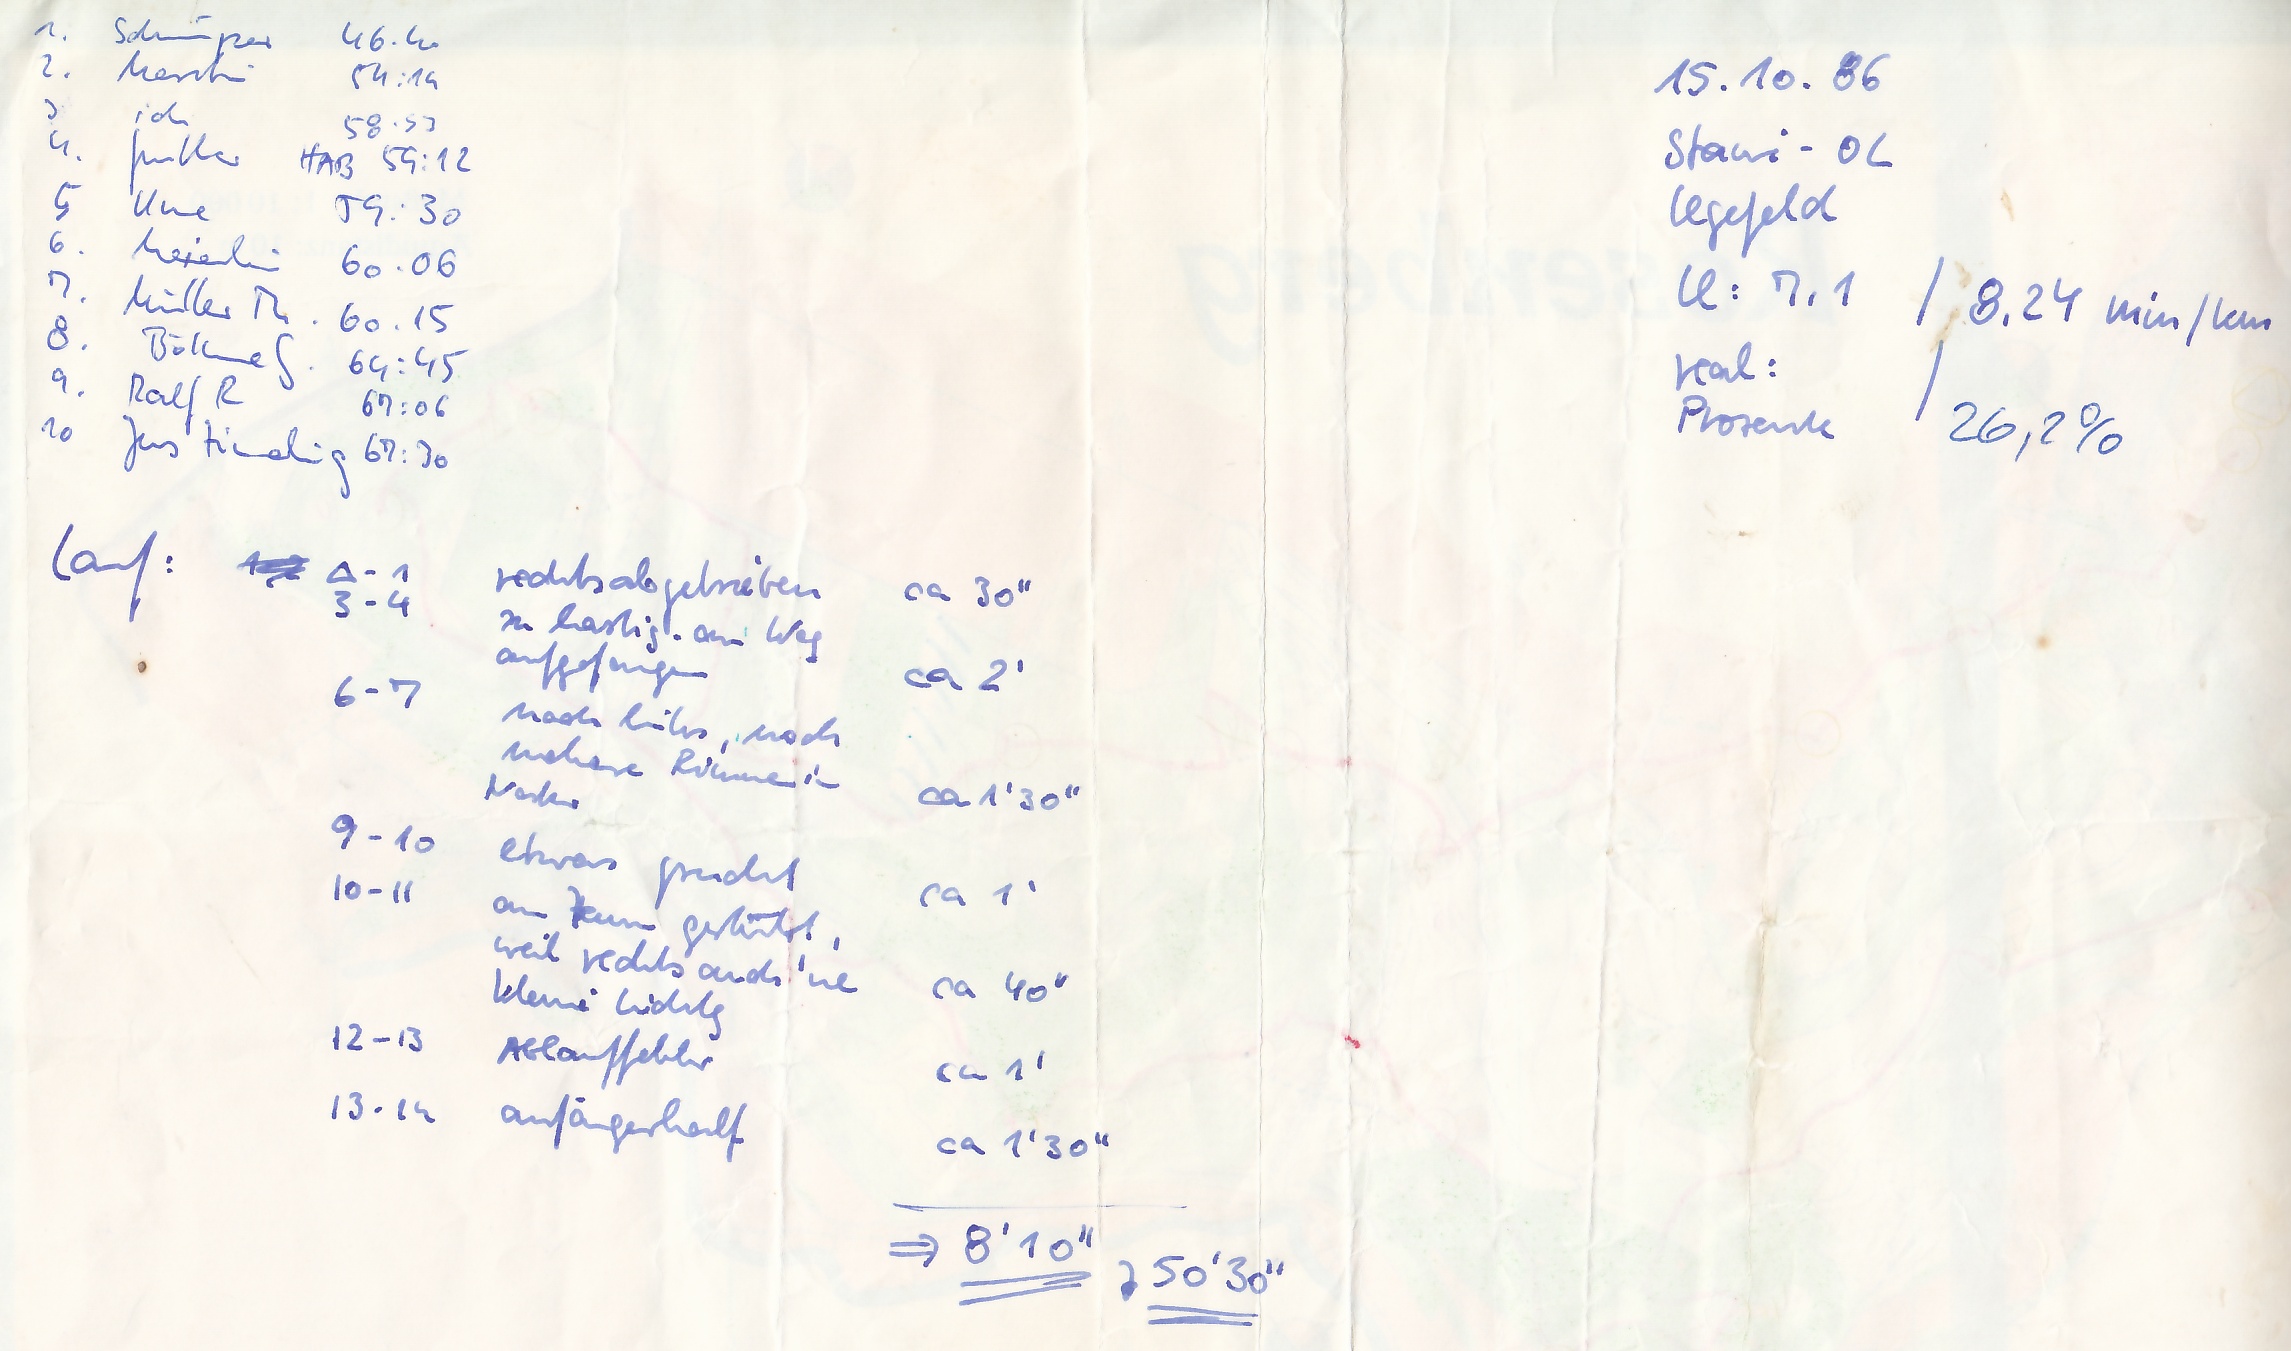 1. 46.40
2. 54:14
3 ich 58.53
4. HAB 59:12
5 Uwe 59:30
6. 60.06
7. Müller Th. 60.15
8. 64:45
9. Ralf R 67:06
10 Jens 67:30
15.10.86
Stawi-OL
Legefeld
LL: 7.1 / 8.24 min/km
real: /
Prozente 26,2%
Lauf: Δ-1 rechts abgetrieben ca 30"
3-4 zu hastig. am Weg
aufgefangen ca 2'
6-7 nach links, noch
mehrere Rinnen in
ca 1'30"
9-10 etwas gesucht ca 1'
10-11 am gestützt,
weil rechts auch 'ne
kleine Lichtg ca 40"
12-13 Ablauffehler ca 1'
13-14 anfängerhaft ca 1'30"
⇒ 8'10"
50'30"
Rosenberg